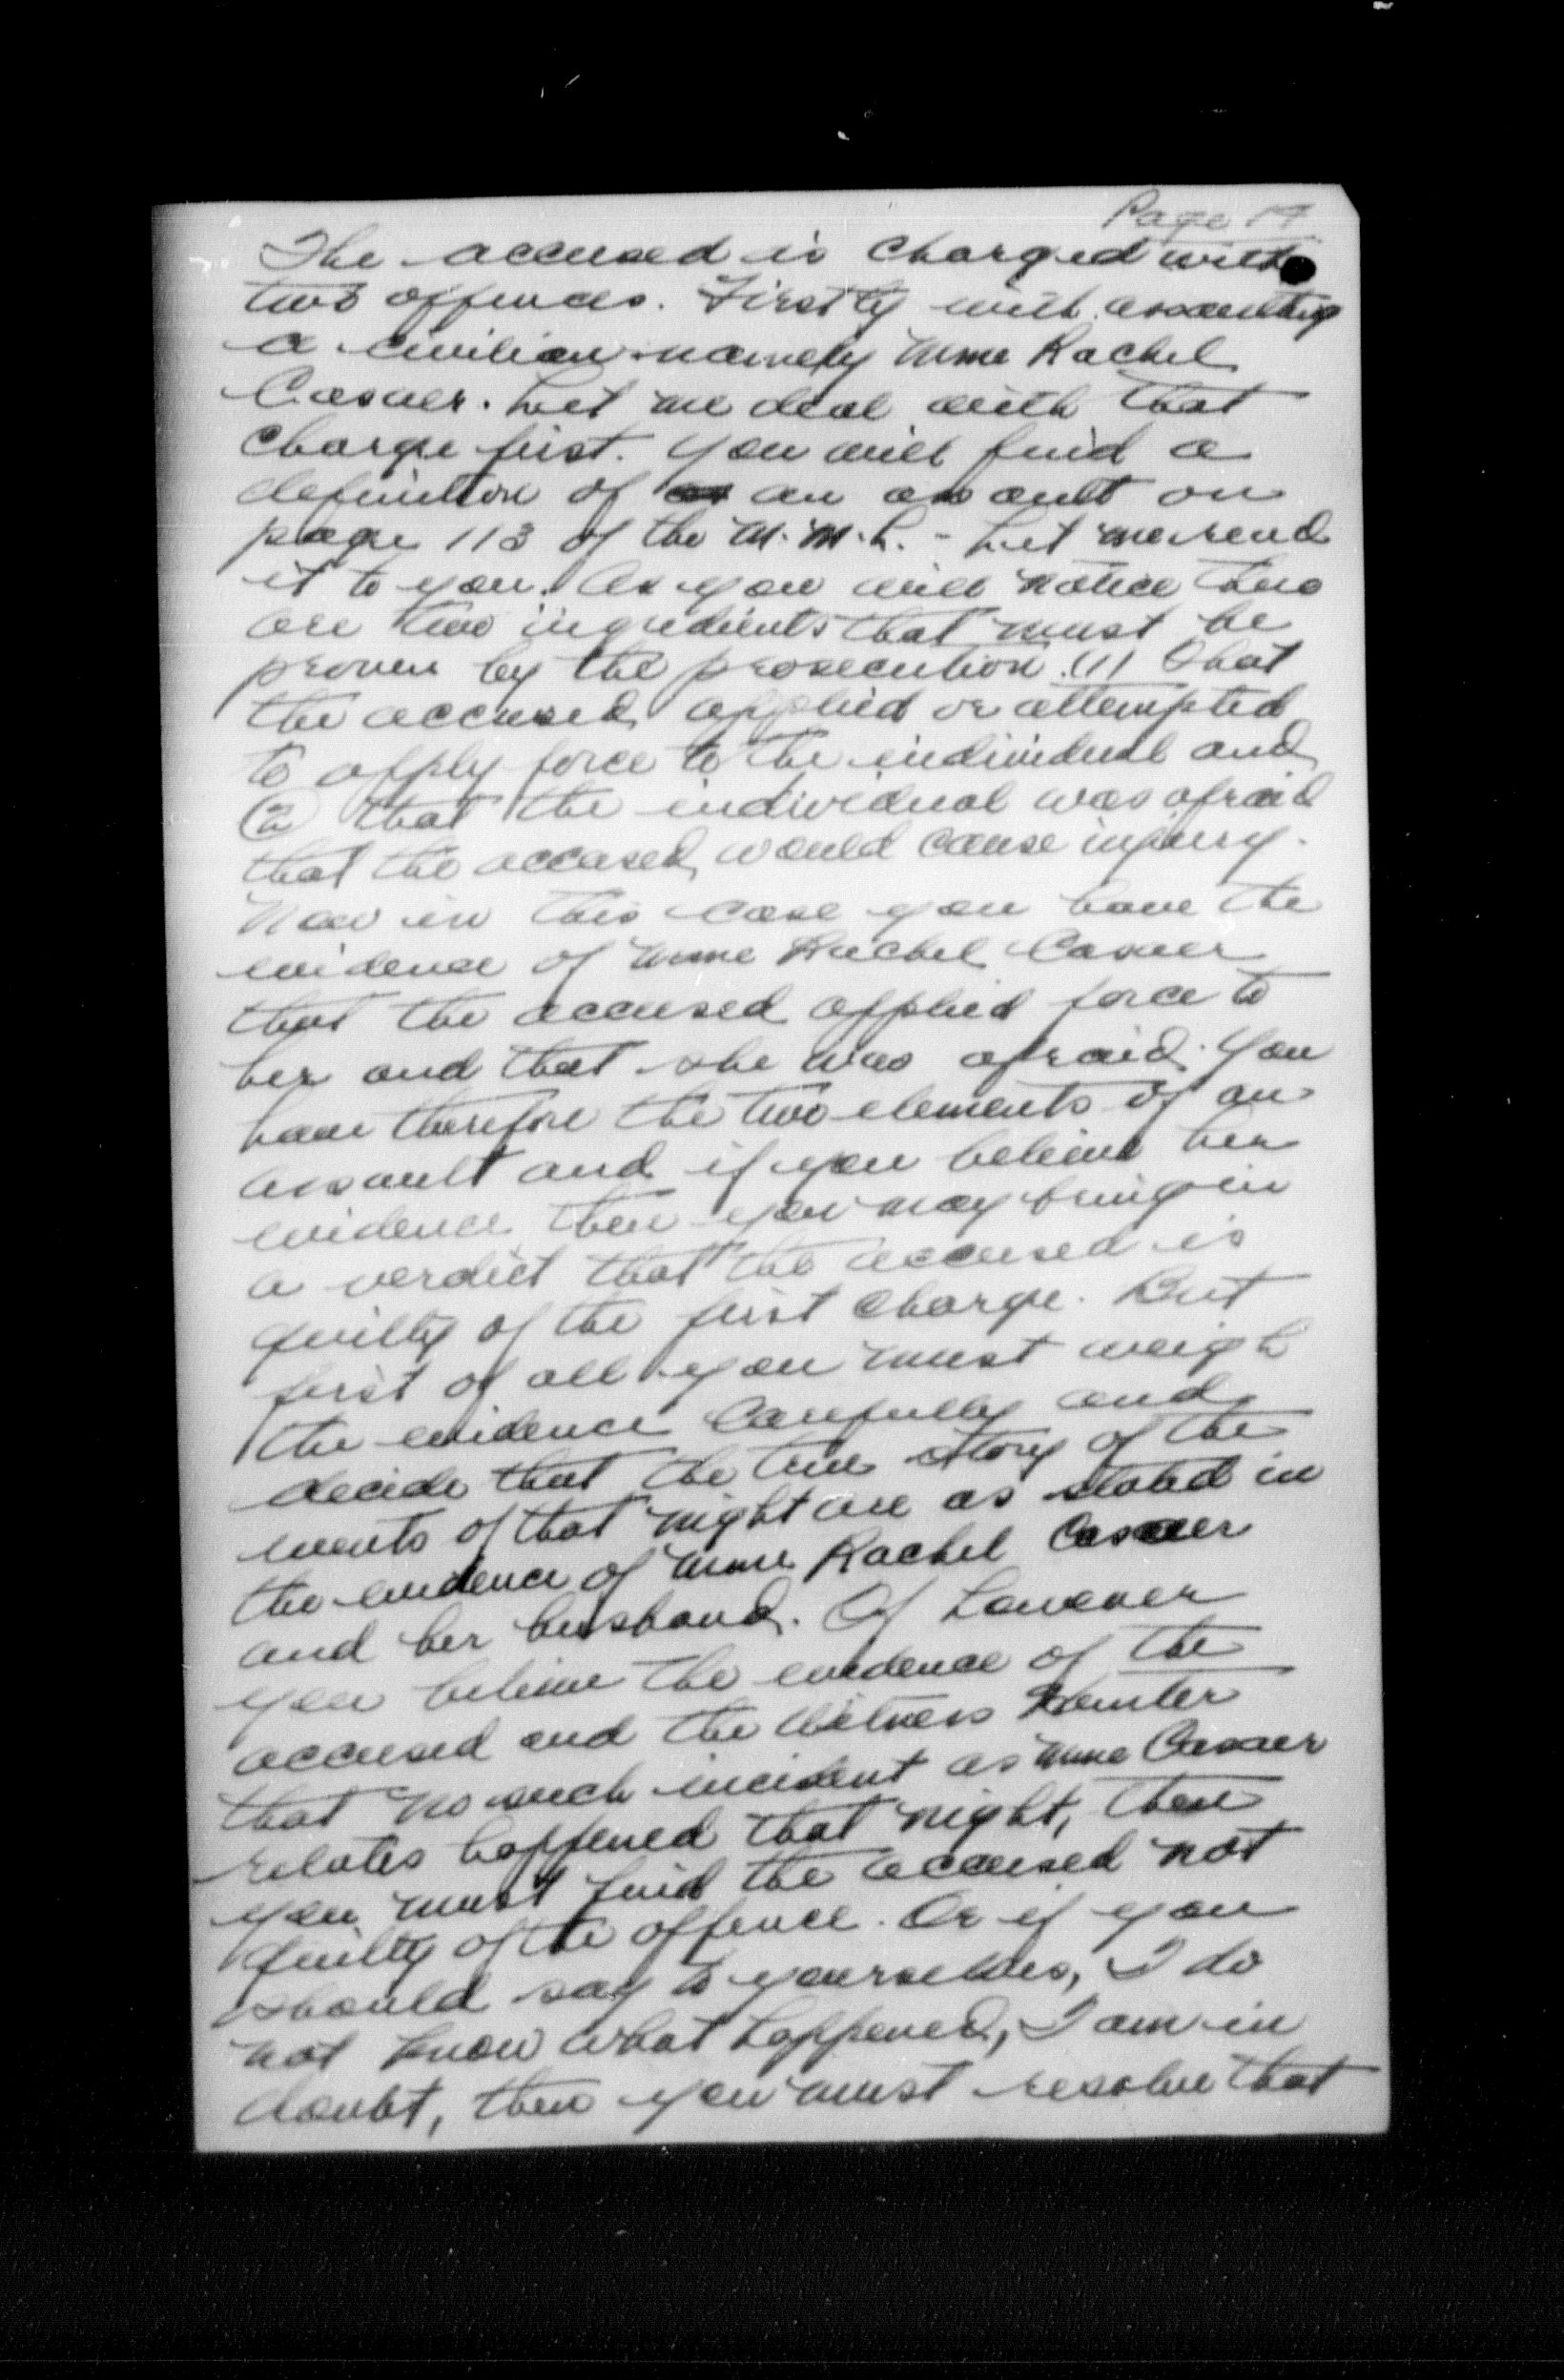 Page 17
The accused is charged with
two offences. Firstly with assaulting
a civilian namely Mme Rachel
Casaer. Let me deal with that
charge first. You will find a
definition of an assault on
page 113 of the M.M.L. - Let me read
it to you. As you will notice there
are two ingredients that must be
proven by the prosecution. (1) That
the accused applied or attempted
to apply force to the individual and
(2) that the individual was afraid
that the accused would cause injury.
Now in this case you have the
evidence of Mme Rachel Casaer
that the accused applied force to
her and that she was afraid. You
have therefore the two elements of an
assault and if you believe her
evidence then you may bring in
a verdict that the accused is
guilty of the first charge. But
first of all you must weigh
the evidence carefully and
decide that the true story of the
events of that night are as stated in
the evidence of Mme Rachel Casaer
and her husband. If however
you believe the evidence of the
accused and the witness
that no such incident as Mme Casaer
relates happened that night, then
you must find the accused not
guilty of the offence. Or if you
should say to yourselves, I do
not know what happened, I am in
doubt, then you must resolve that